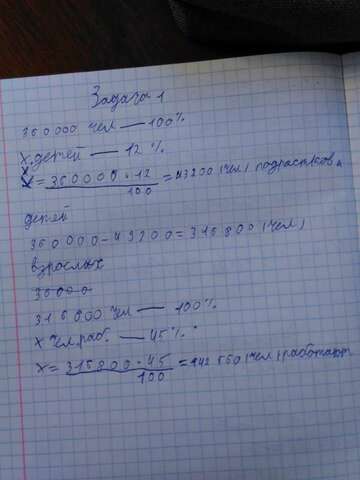 Задача 1
360000 чел — 100%
х детей — 12%
х = 360000 · 12 / 100 = 43200 (чел) подрастков и
детей
360000 - 43200 = 316800 (чел)
взрослых
36000
316800 чел — 100%
х чел раб. — 45%
х = 316800 · 45 / 100 = 142560 (чел) работают